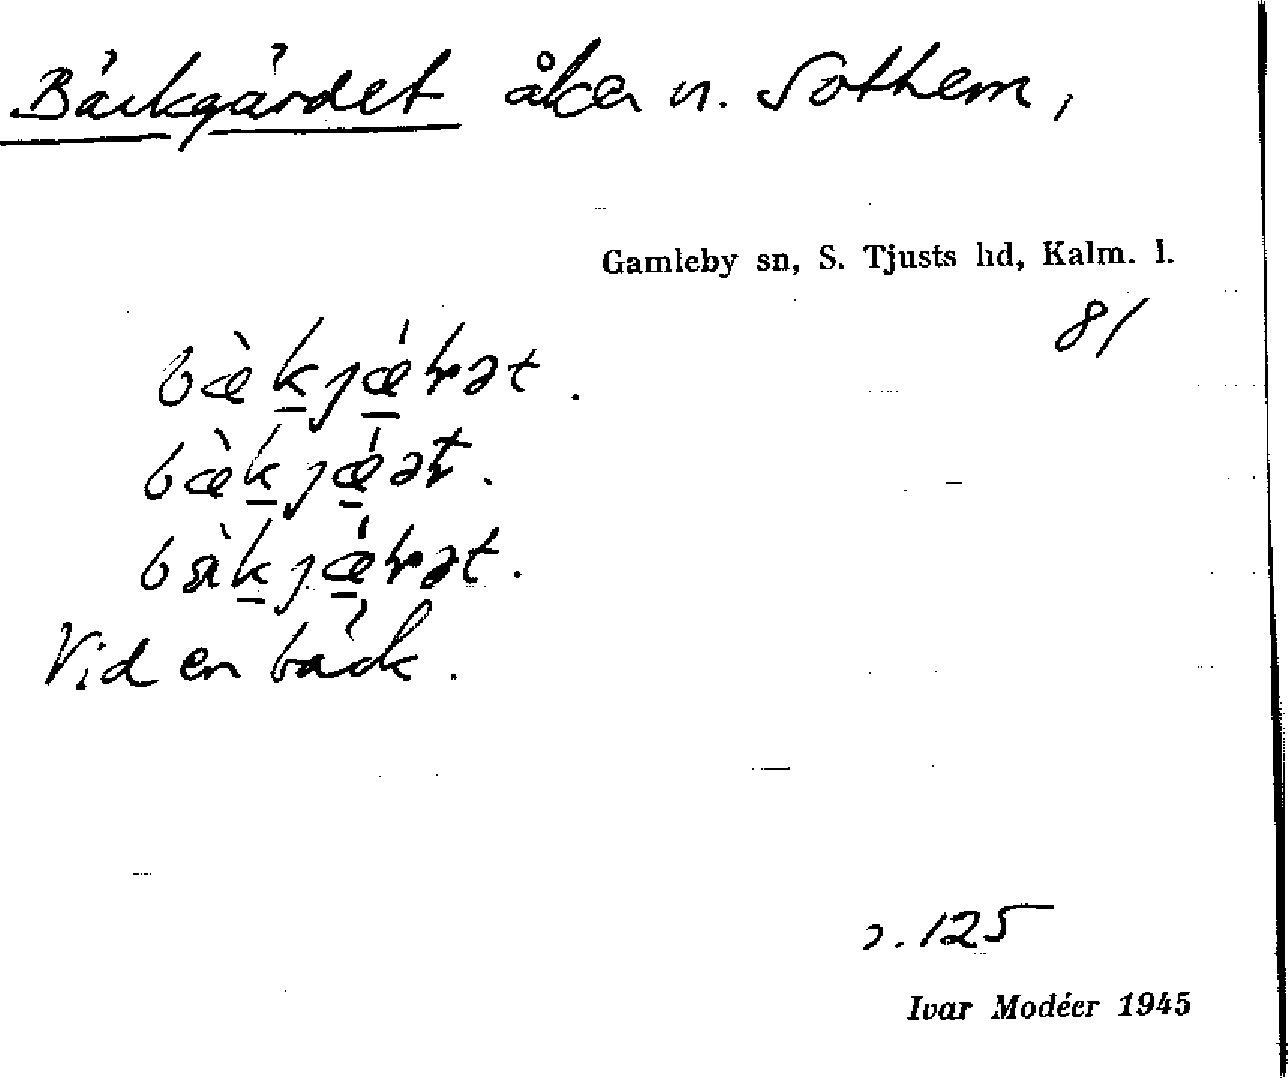 Bäckgärdet åker n. Sothem,
Gamleby sn, S. Tjusts hd, Kalm. l.
81
bæ̀k̲jǽ̲hət.
bæ̀k̲jǽ̲ət.
k̲jǽ̲hət.
Vid en bäck.
s. 125
Ivar Modéer 1945